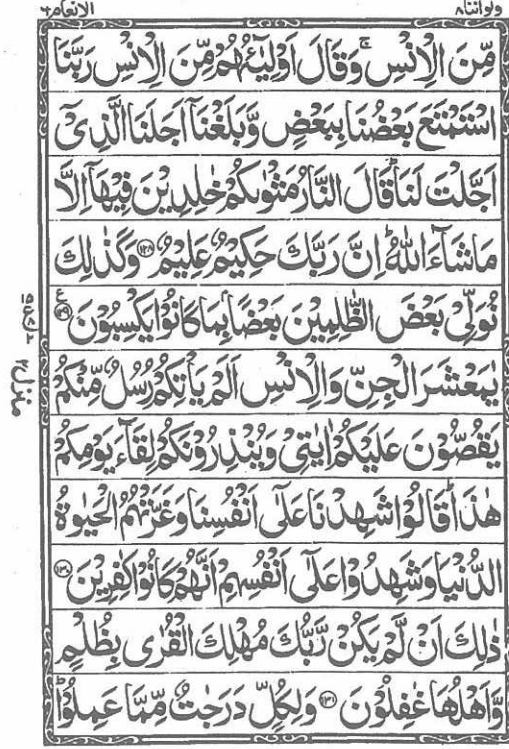 ولواننا ٨ الانعام ٦
مِّنَ الْاِنْسِ ۚ وَقَالَ اَوْلِيٰٓـُٔهُمْ مِّنَ الْاِنْسِ رَبَّنَا
اسْتَمْتَعَ بَعْضُنَا بِبَعْضٍ وَّبَلَغْنَاۤ اَجَلَنَا الَّذِىْۤ
اَجَّلْتَ لَنَا ؕ قَالَ النَّارُ مَثْوٰىكُمْ خٰلِدِيْنَ فِيْهَاۤ اِلَّا
مَا شَآءَ اللّٰهُ ؕ اِنَّ رَبَّكَ حَكِيْمٌ عَلِيْمٌ ۝۱۲۸ وَكَذٰلِكَ
نُوَلِّىْ بَعْضَ الظّٰلِمِيْنَ بَعْضًۢا بِمَا كَانُوْا يَكْسِبُوْنَ ۝۱۲۹ ع
يٰمَعْشَرَ الْجِنِّ وَالْاِنْسِ اَلَمْ يَاْتِكُمْ رُسُلٌ مِّنْكُمْ
يَقُصُّوْنَ عَلَيْكُمْ اٰيٰتِىْ وَيُنْذِرُوْنَكُمْ لِقَآءَ يَوْمِكُمْ
هٰذَا ؕ قَالُوْا شَهِدْنَا عَلٰٓى اَنْفُسِنَا وَغَرَّتْهُمُ الْحَيٰوةُ
الدُّنْيَا وَشَهِدُوْا عَلٰٓى اَنْفُسِهِمْ اَنَّهُمْ كَانُوْا كٰفِرِيْنَ ۝۱۳۰
ذٰلِكَ اَنْ لَّمْ يَكُنْ رَّبُّكَ مُهْلِكَ الْقُرٰى بِظُلْمٍ
وَّاَهْلُهَا غٰفِلُوْنَ ۝۱۳۱ وَلِكُلٍّ دَرَجٰتٌ مِّمَّا عَمِلُوْا ؕ
منزل ٢